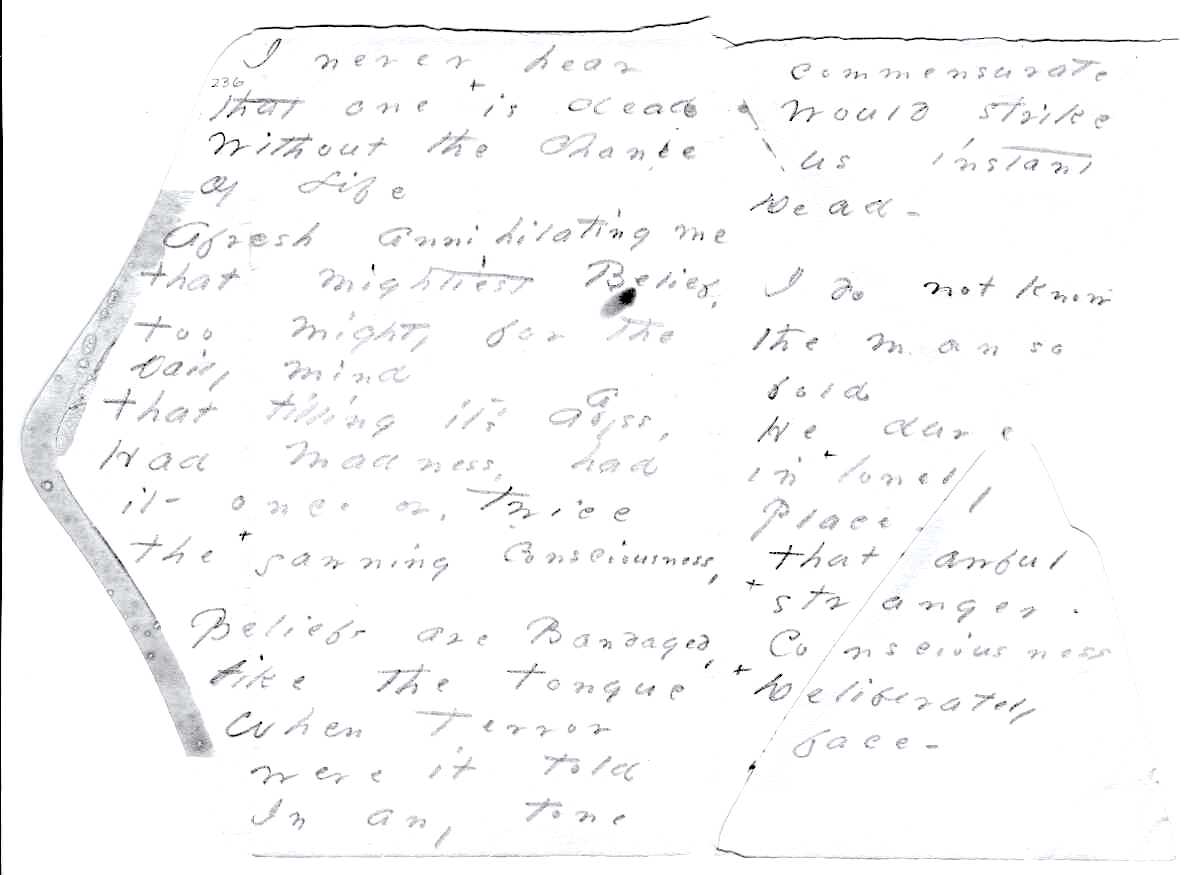 I never hear
236
that one + is dead
Without the Chance
of Life
Afresh annihilating me
that mightiest Belief,
too mighty for the
Daily mind
that tilling it's abyss,
Had Madness, had
it once or, Twice
the + yawning Consciousness,
Beliefs are Bandaged,
like the tongue
When Terror
were it told
In any tone
commensurate
Would strike
us instant
Dead -
I do not know
the man so
bold
He dare
in + lonely
Place.
that awful
+ stranger.
Consciousness
+ Deliberately
face -